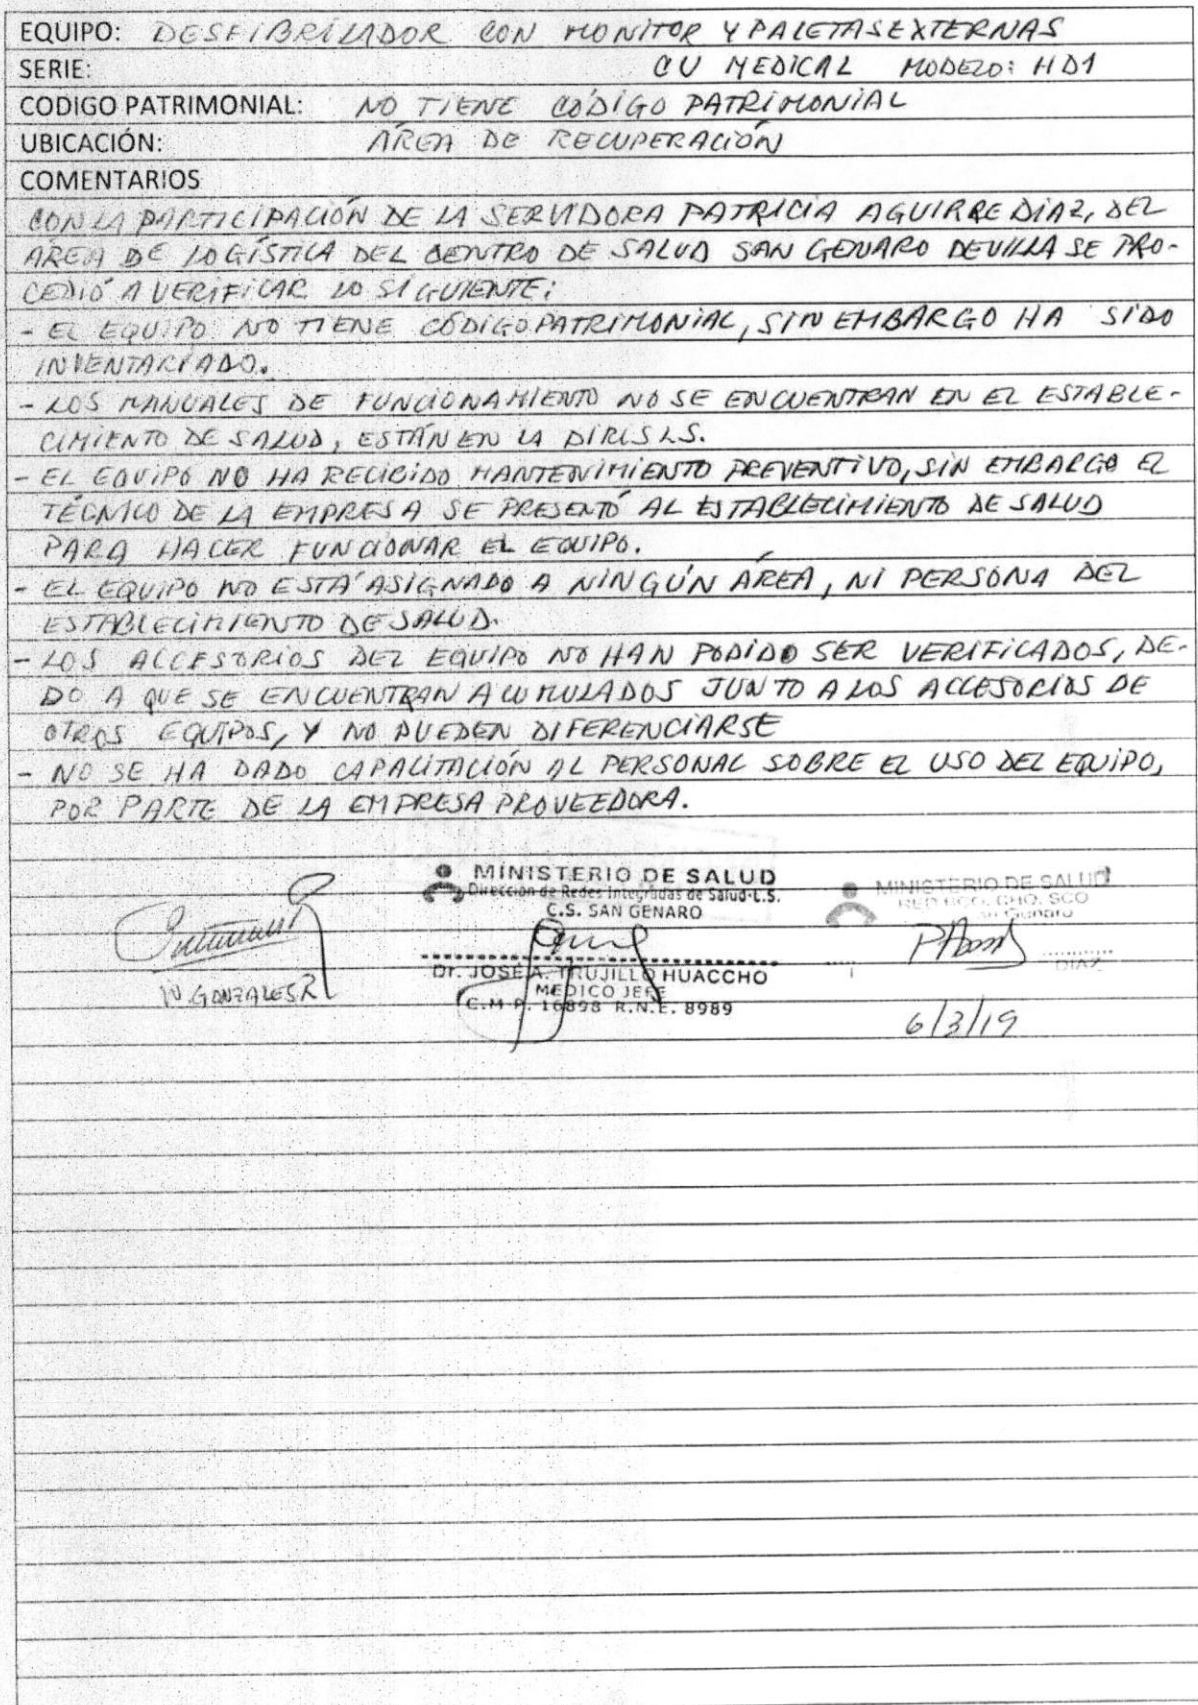 EQUIPO: DESFIBRILADOR CON MONITOR Y PALETAS EXTERNAS
SERIE: CU MEDICAL MODELO: HD1
CODIGO PATRIMONIAL: NO TIENE CÓDIGO PATRIMONIAL
UBICACIÓN: ÁREA DE RECUPERACIÓN
COMENTARIOS
CON LA PARTICIPACIÓN DE LA SERVIDORA PATRICIA AGUIRRE DIAZ, DEL
ÁREA DE LOGÍSTICA DEL CENTRO DE SALUD SAN GENARO DE VILLA SE PRO-
CEDIÓ A VERIFICAR LO SIGUIENTE:
- EL EQUIPO NO TIENE CÓDIGO PATRIMONIAL, SIN EMBARGO HA SIDO
INVENTARIADO.
- LOS MANUALES DE FUNCIONAMIENTO NO SE ENCUENTRAN EN EL ESTABLE-
CIMIENTO DE SALUD, ESTÁN EN LA DIRIS L.S.
- EL EQUIPO NO HA RECIBIDO MANTENIMIENTO PREVENTIVO, SIN EMBARGO EL
TÉCNICO DE LA EMPRESA SE PRESENTÓ AL ESTABLECIMIENTO DE SALUD
PARA HACER FUNCIONAR EL EQUIPO.
- EL EQUIPO NO ESTÁ ASIGNADO A NINGÚN ÁREA, NI PERSONA DEL
ESTABLECIMIENTO DE SALUD.
- LOS ACCESORIOS DEL EQUIPO NO HAN PODIDO SER VERIFICADOS, DE-
DO A QUE SE ENCUENTRAN ACUMULADOS JUNTO A LOS ACCESORIOS DE
OTROS EQUIPOS, Y NO PUEDEN DIFERENCIARSE
- NO SE HA DADO CAPACITACIÓN AL PERSONAL SOBRE EL USO DEL EQUIPO,
POR PARTE DE LA EMPRESA PROVEEDORA.
MINISTERIO DE SALUD
Dirección de Redes Integradas de Salud-L.S.
C.S. SAN GENARO
Dr. JOSE A. TRUJILLO HUACCHO
MEDICO JEFE
C.M.P. 16898 R.N.E. 8989
MINISTERIO DE SALUD
RED BCO. CHO. SCO
Genaro
DIAZ
GONZALES R
6/3/19